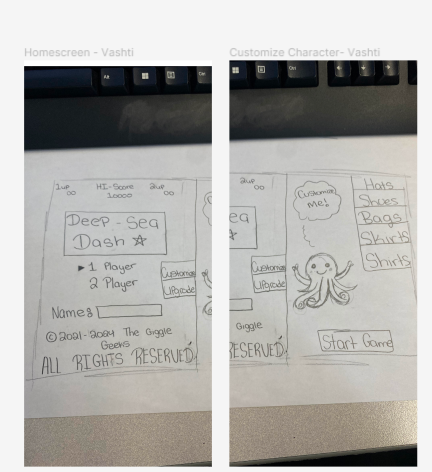 Homescreen - Vashti
1up HI-Score 2up
00 10000 00
Deep-Sea
Dash
1 Player
2 Player
Customize
Upgrade
Name:
© 2021-2024 The Giggle
Geeks
ALL RIGHTS RESERVED
Customize Character- Vashti
2up
00
ea
Customize
Upgrade
Giggle
RESERVED
Customize
Me!
Hats
Shoes
Bags
Skirts
Shirts
Start Game
Alt
Ctrl